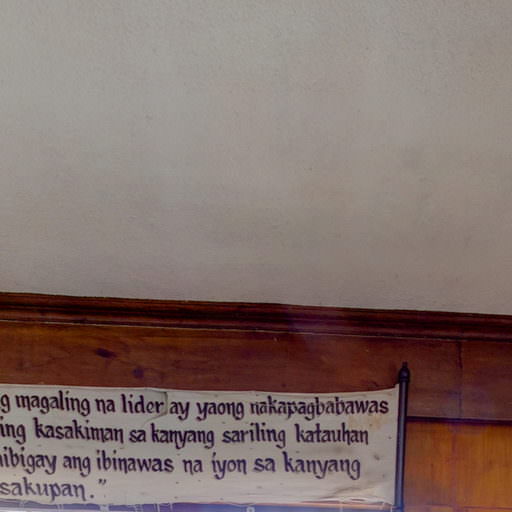 g magaling na lider ay yaong nakapagbabawas
ing kasakiman sa kanyang sariling katauhan
ibigay ang ibinawas na iyon sa kanyang
sakupan."